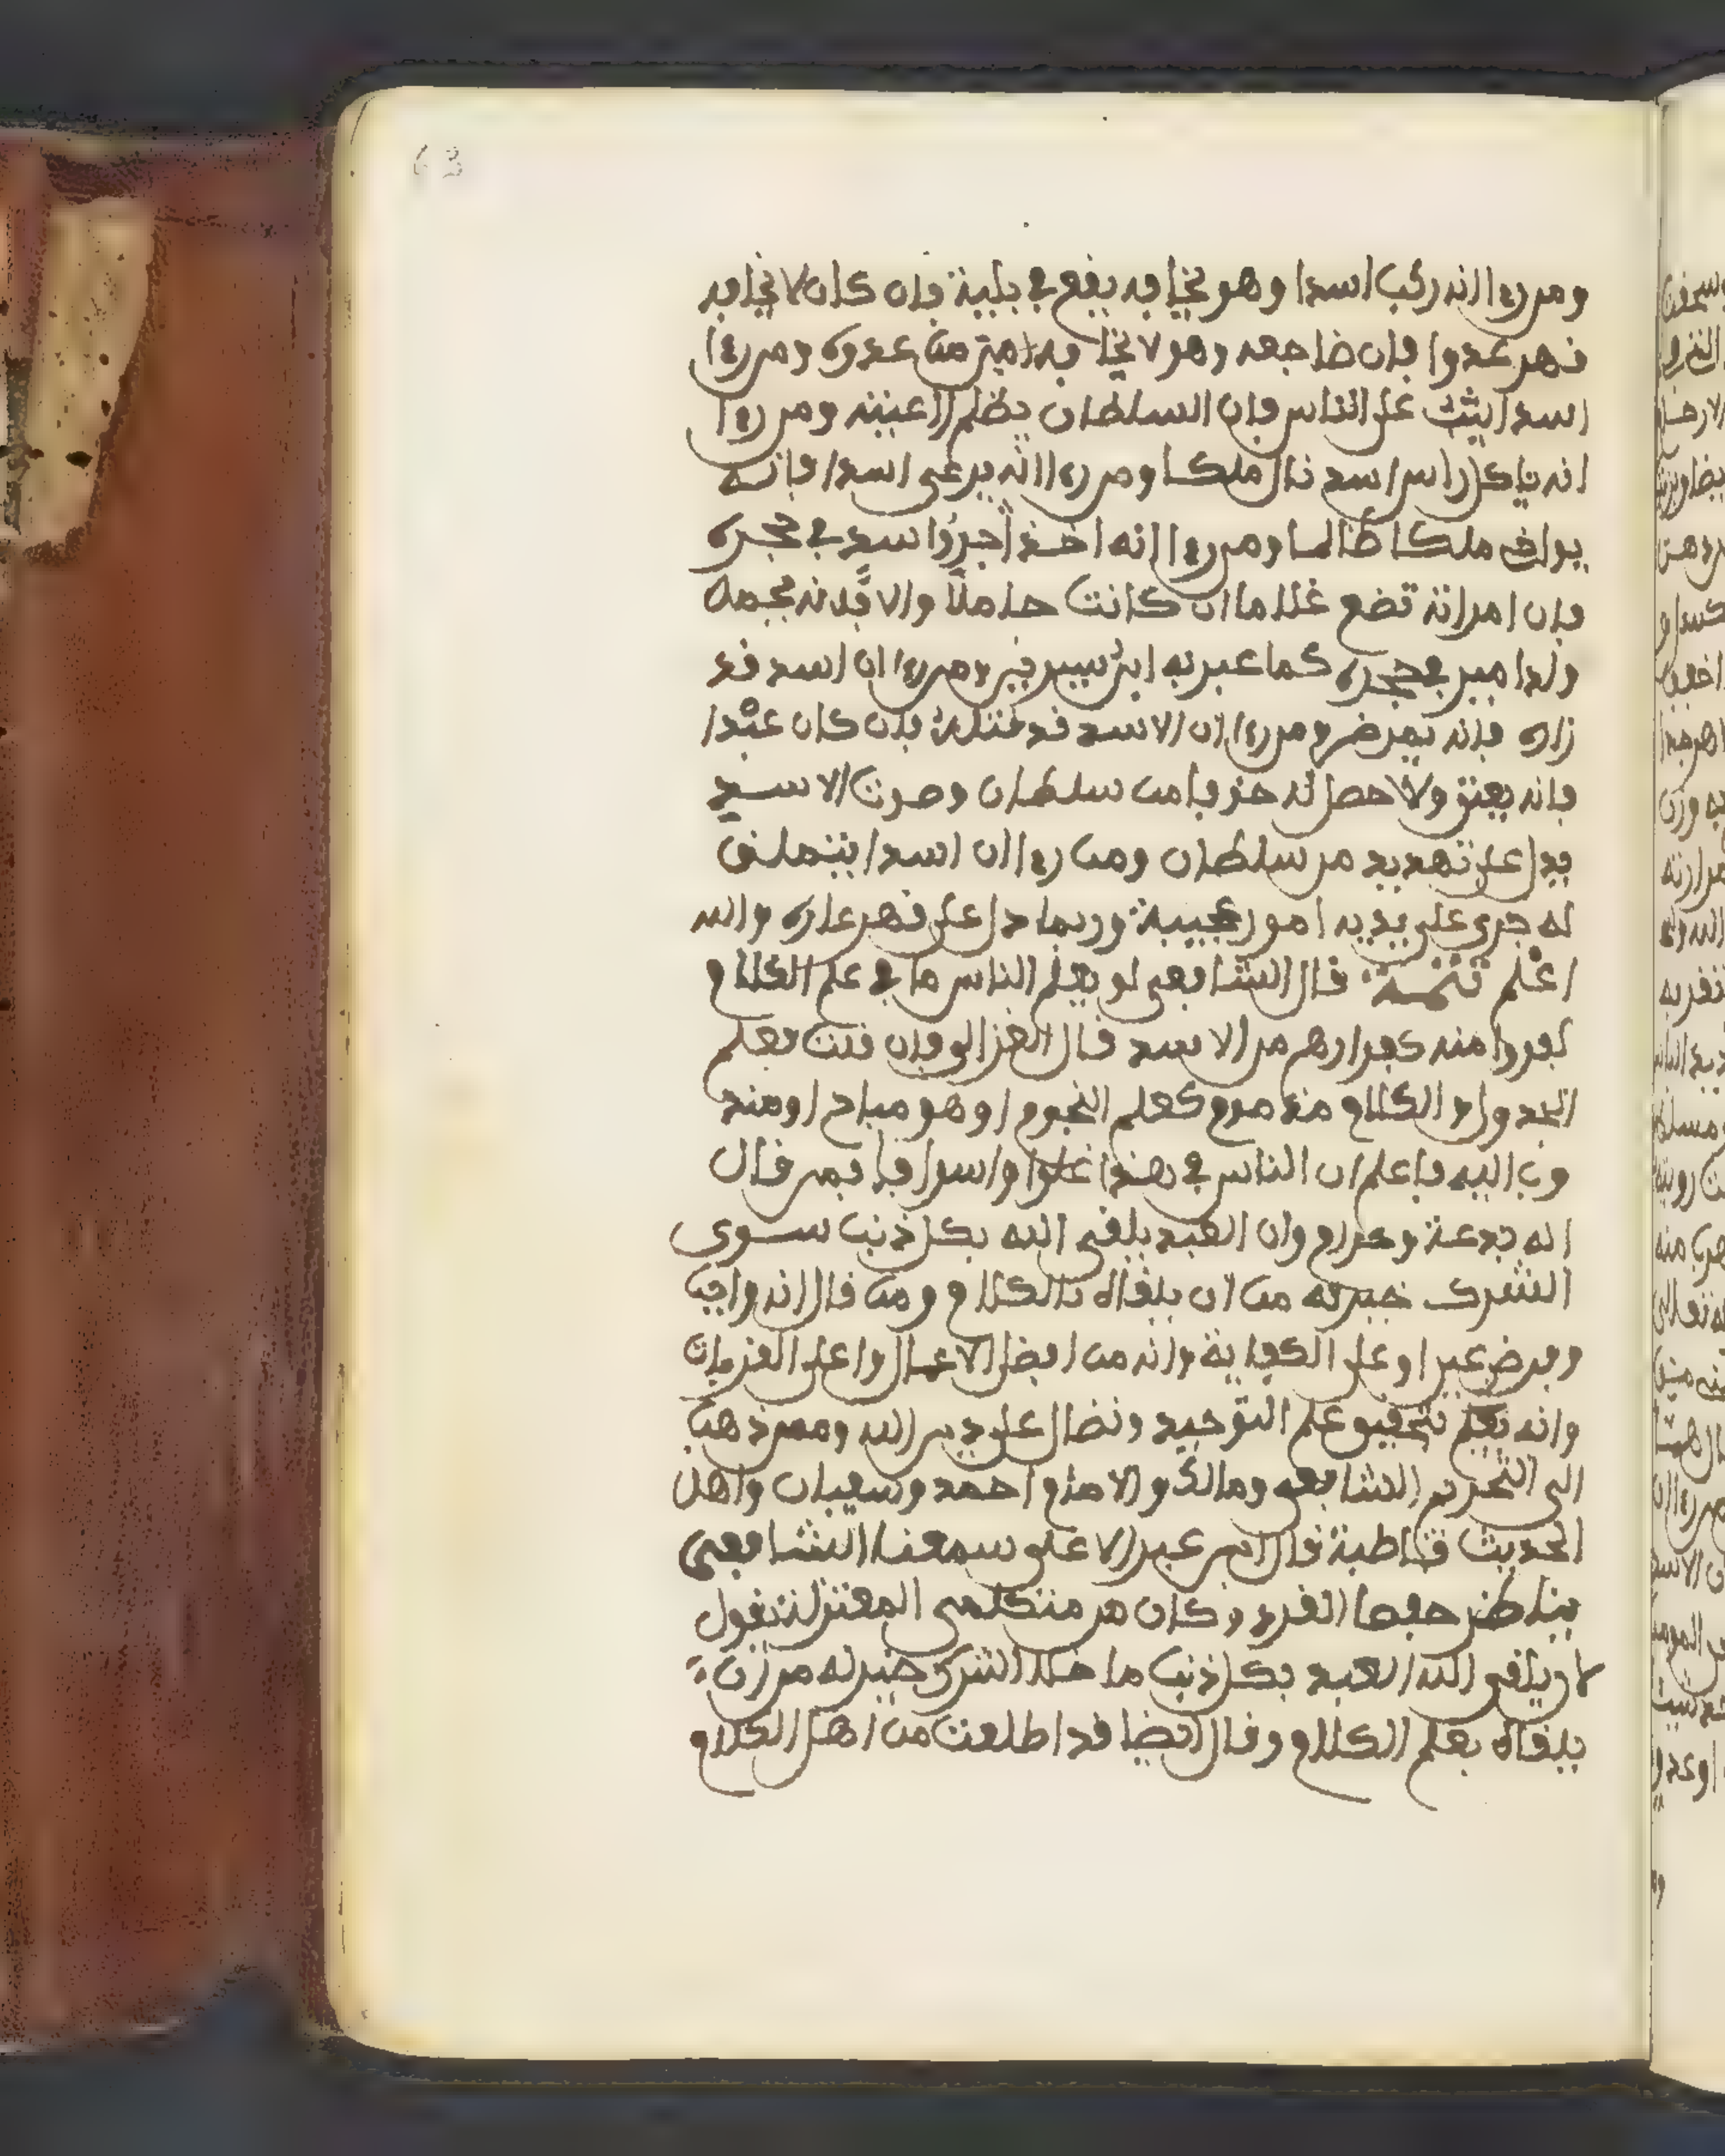 63
ومن رءا انه ركب اسدا وهو يخافه يقع في بلية فان كان لا يخافه
قهر عدوا فان ضاجعه وهو لا يخافه امن من عدوه ومن رءا
اسدا يثب على الناس فان السلطان يظلم رعيته ومن رءا
انه ياكل راس اسد نال ملكا ومن رءا انه يرعى اسدا فانه
يواخي ملكا ظالما ومن رءا انه اخذ جروا سد في حجره
فان امراته تضع غلاما ان كانت حاملا والا فانه يحمل
ولدا مير في حجره كما عبر به ابن سيرين ومن رءا ان اسد قد
زاره فانه يمرض ومن رءا ان الاسد قد قتله فان كان عبدا
فانه يعتق والا حصل له خوفا من سلطان وصوت الاسد
يدل على تهديد من سلطان ومن رءا ان اسدا يتملق
له جرى على يديه امور عجيبة وربما دل على قهر عداه والله
اعلم تتمة قال الشافعي لو يعلم الناس ما في علم الكلام
لفروا منه كفرارهم من الاسد قال الغزالي فان قلت تعلم
الجدول والكلام مذموم كعلم النجوم او هو مباح او مند
وب اليه فاعلم ان الناس في هذا غلوا واسرافا فمن قال
انه بدعة وحرام وان العبد يلقى الله بكل ذنب سوى
الشرك خير له من ان يلقاه بالكلام ومن قال انه واجب
وفرض عين او على الكفاية وانه من افضل الاعمال واعلى القربات
وانه تعلم تحقيق علم التوحيد ونضال على دين الله وممن ذهب
الى التحريم الشافعي ومالك والامام احمد وسفيان واهل
الحديث قاطبة قال ابن عبد الاعلى سمعنا الشافعي
يناظر حفصا الفرد وكان من متكلمي المعتزلة يقول
لان يلقى الله العبد بكل ذنب ما خلا الشرك خير له من ان
يلقاه بعلم الكلام وقال ايضا قد اطلعت من اهل الكلام